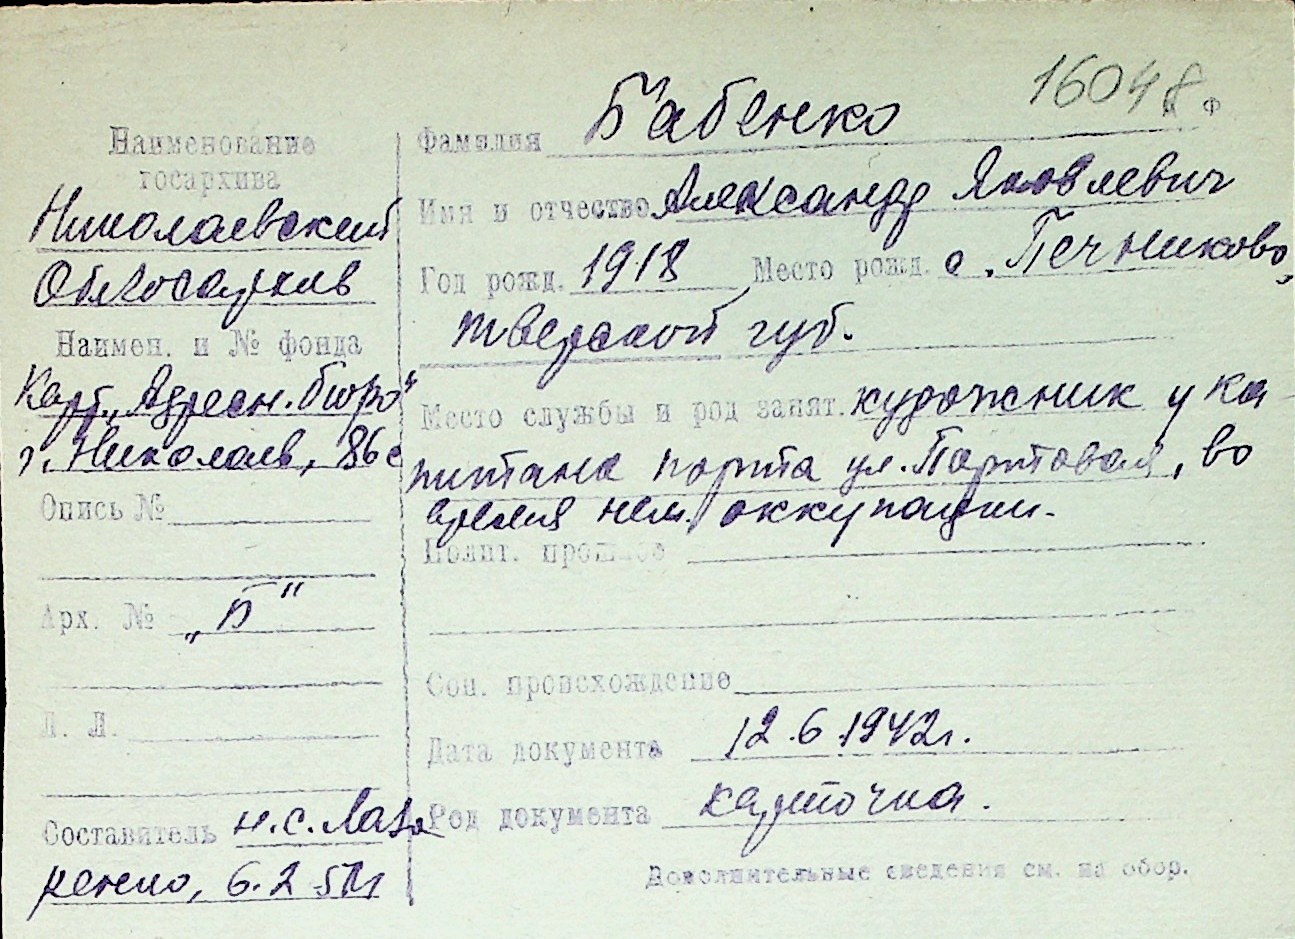 16048
ф
Наименование
госархива
Николаевский
Облгосархив
Наимен. и № фонда
Карт. „Адресн. бюро"
г. Николаев, 86с
Опись №
Арх. № „Б"
Л. Л.
Составитель н.с. Лаза
ренко, 6.2 51г
Фамилия Бабенко
Имя и отчество Александр Яковлевич
Год рожд. 1918 Место рожд. с. Печниково,
тверской губ.
Место службы и род занят. художник у ка-
питана порта ул. Портовая, во
время нем. оккупации.
Полит. прошлое
Соц. происхождение
Дата документа 12.6.1942г.
Род документа карточка.
Дополнительные сведения см. на обор.